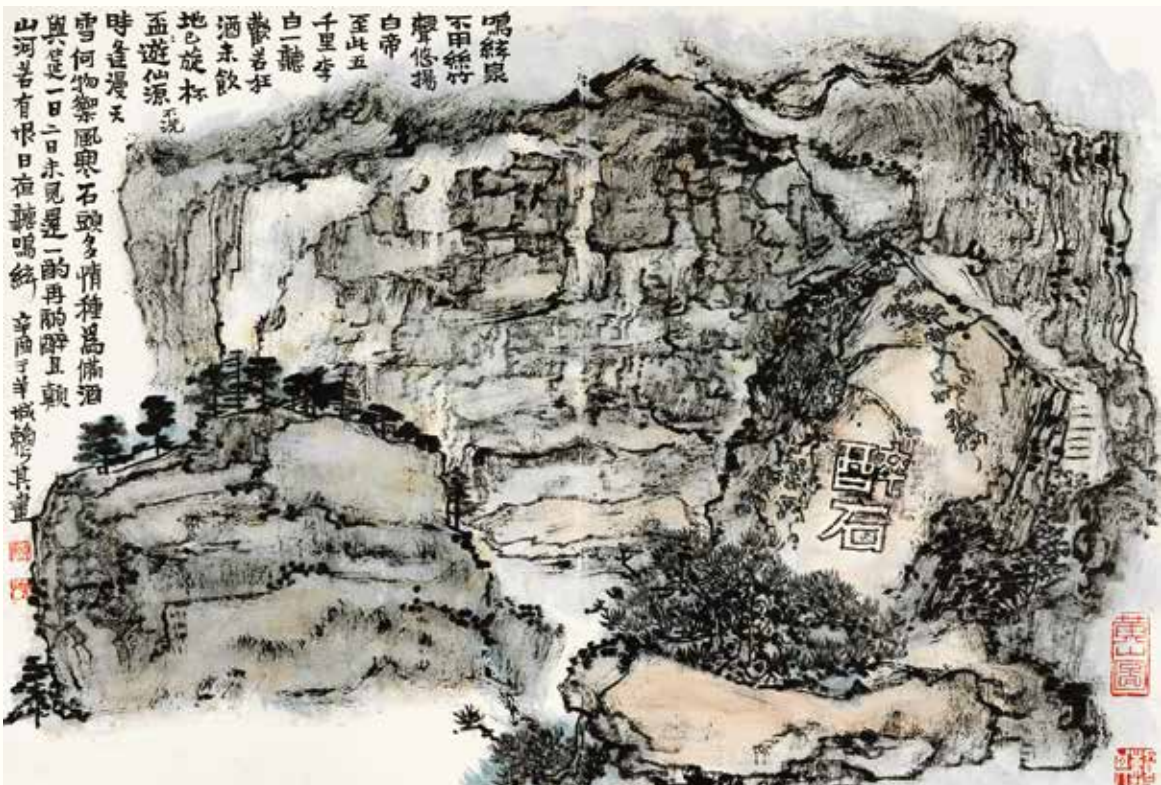 鳴絃泉
不用絲竹
聲悠揚
白帝
至此五
千里李
白一聽
歡若狂
酒未飲
地已旋杯
盃遊仙源
時逢漫天
雪何物禦風寒石頭多情種爲備酒
與筵一日二日未見還一酌再酌醉且顛
山河若有恨日夜聽鳴絃 辛酉于羊城賴少其畫
醉石
黃山